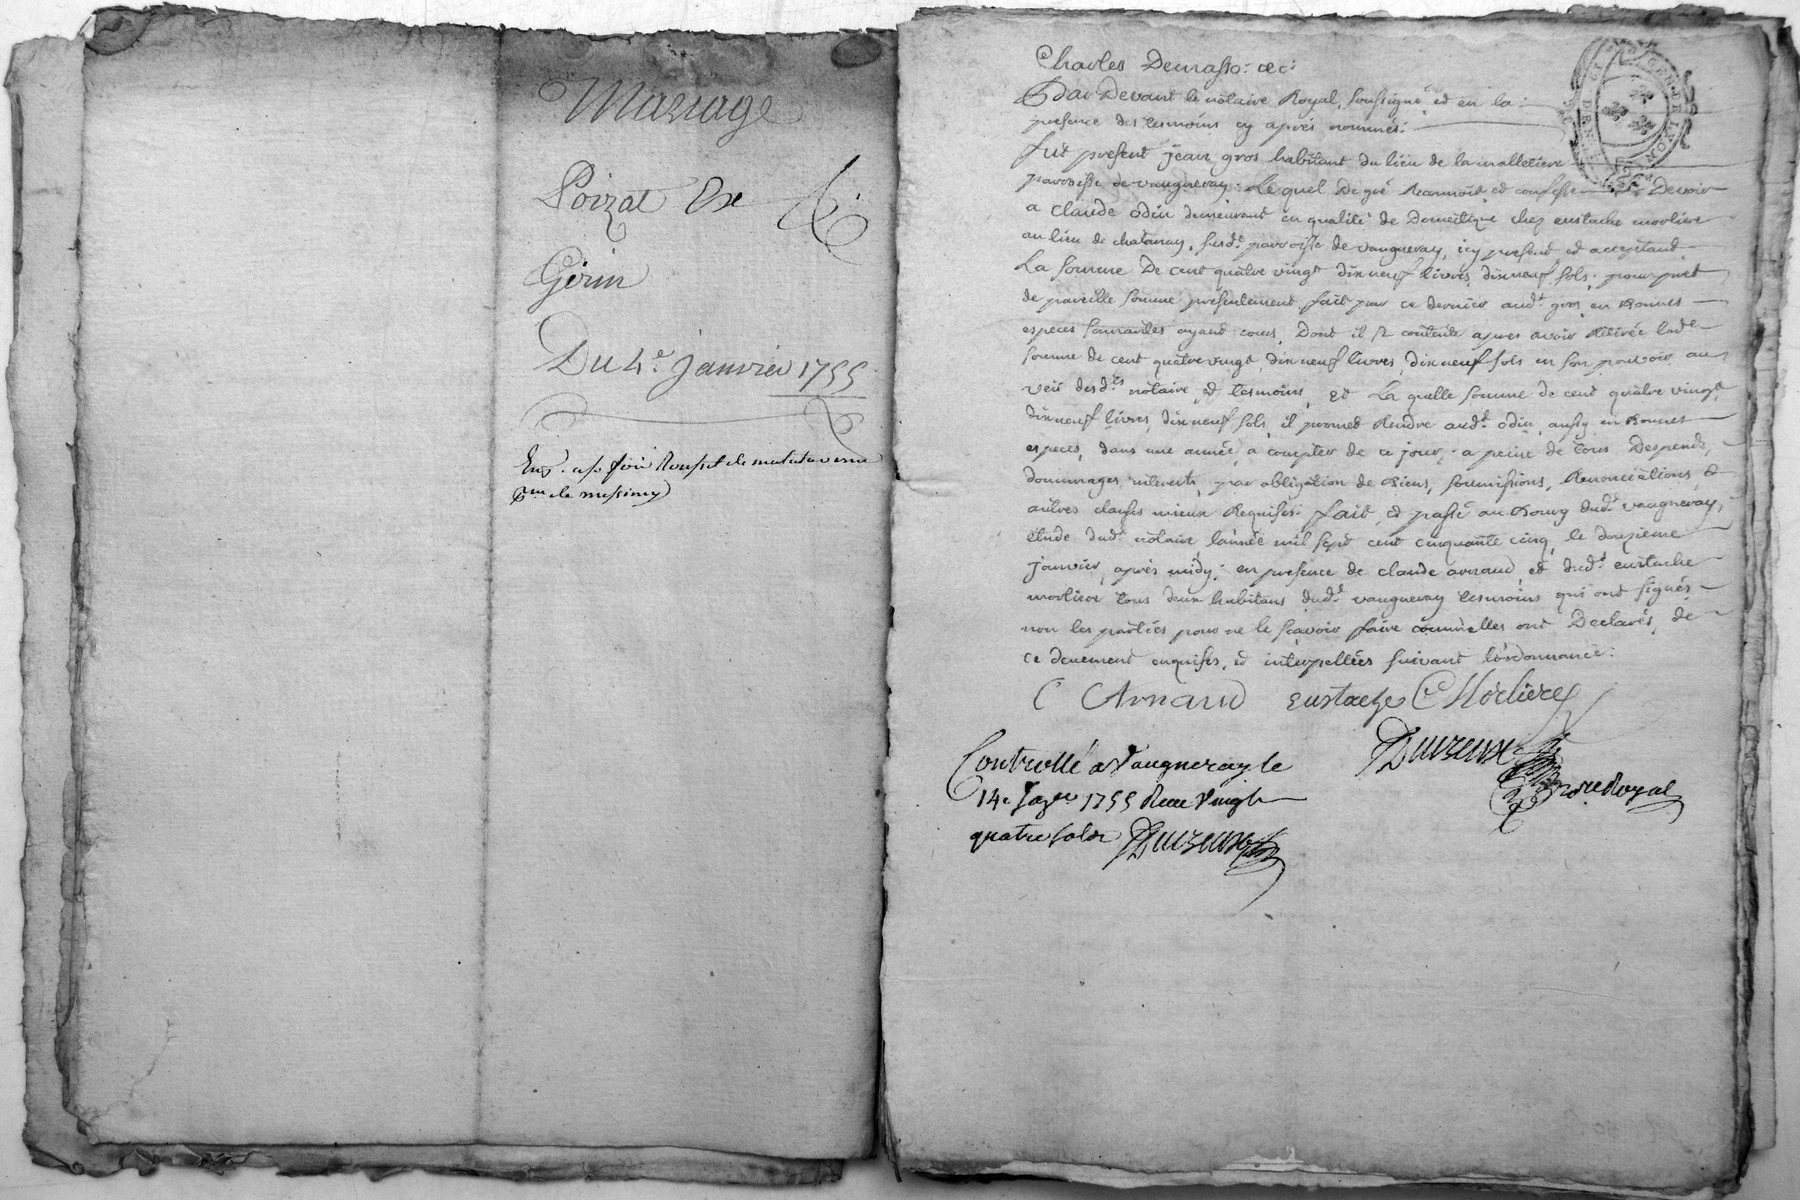 Mariage
Poizat &
Gérin
Du 4e. Janvier 1755
de messimy
Charles
Par Devant le nôtaire Royal, soussigné et en la
presence des tesmoins cy aprés nommés:
fut présent jean gros habitant du lieu de la malletiere
parroisse de vaugneray: Lequel de gré Reconnoit et confesse Devoir
a claude odin demeurant en qualité de Domestique chez eustache morliere
au lieu de chatanay, susd.e parroisse de vaugneray, icy present et acceptant
La somme De cent quatre vingt dix neuf livres dix neuf sols: pour pret
de pareille somme présentement fait par ce dernier aud.t gros en Bonnes
especes sonnantes ayant cours, Dont il se contente apres avoir Rétirée lad.e
somme de cent quatre vingt dix neuf livres, dix neuf sols en son pouvoir au
veü desd.ts notaire et tesmoins, Et La quelle somme de cent quatre vingt
dix neuf livres, dix neuf sols, il promet Rendre aud.t odin, aussy en Bonnes
especes, dans une année, a compter de ce jour, a peine de tous Despends,
dommages, interests, par obligation de Biens, soumissions, Renonciations, &
autres clauses mieux Requises: fait et passé au Bourg dud.t vaugneray,
étude dud.t nôtaire l'année mil sept cent cinquante cinq, le douzieme
janvier, aprés midy: en presence de claude arnaud, et dud.t eustache
morliere tous deux habitans dud.t vaugneray tesmoins qui ont signés
non les parties pour ne le sçavoir faire comm'elles ont Declarés, de
ce deuement enquises, et interpellées suivant l'ordonnance:
C Arnaud eustache Morliere
Controllé a Vaugneray le
14e Janer 1755 Receu Vingt
nore Royal
quatre sols